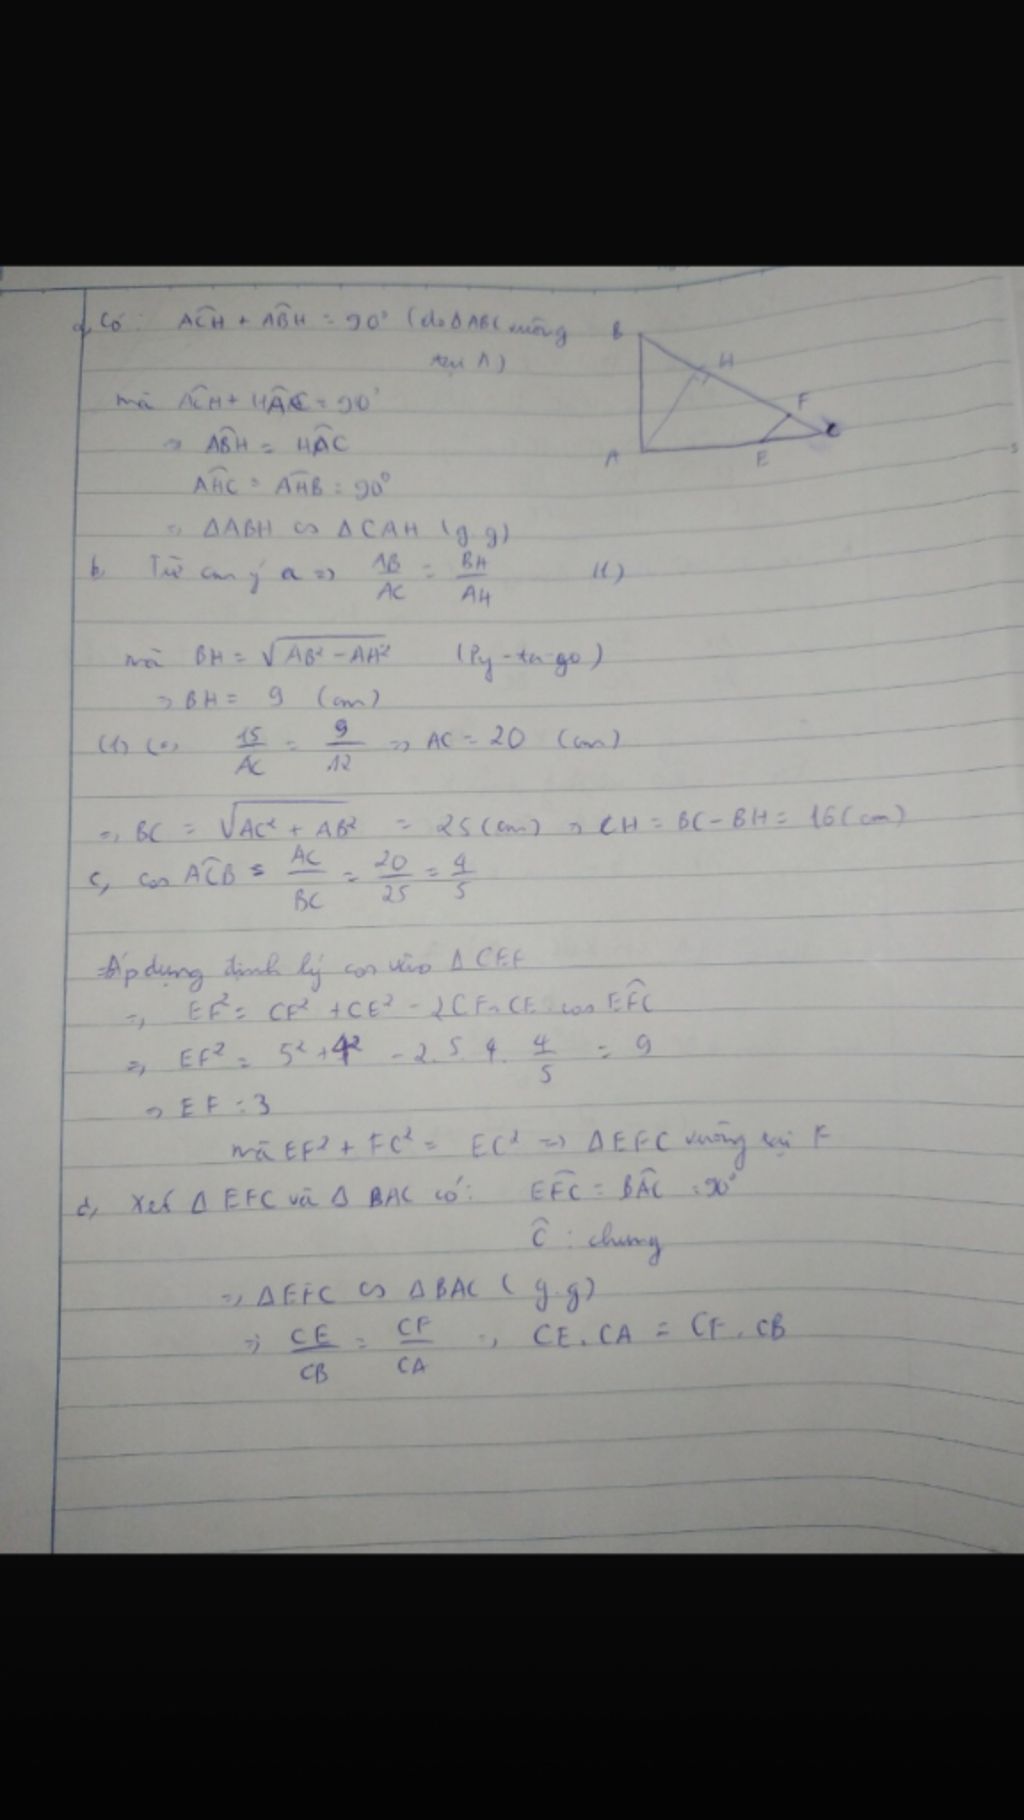 a, Có: ACH + ABH = 90° (do ΔABC vuông
tại A)
mà ACH + HAC = 90°
⇒ ABH = HAC
AHC = AHB = 90°
⇒ ΔABH ∽ ΔCAH (g.g)
b, Từ câu ý a ⇒ AB/AC = BH/AH (1)
mà BH = √(AB² - AH²) (Py-ta-go)
⇒ BH = 9 (cm)
(1) ⇔ 15/AC = 9/12 ⇒ AC = 20 (cm)
⇒ BC = √(AC² + AB²) = 25 (cm) ⇒ CH = BC - BH = 16 (cm)
c, cos ACB = AC/BC = 20/25 = 4/5
Áp dụng định lý cos vào Δ CEF
⇒ EF² = CF² + CE² - 2CF.CE.cos EFC
⇒ EF² = 5² + 4² - 2.5.4.4/5 = 9
⇒ EF = 3
mà EF² + FC² = EC² ⇒ ΔEFC vuông tại F
d, Xét Δ EFC và Δ BAC có: EFC = BAC = 90°
C : chung
⇒ ΔEFC ∽ ΔBAC (g.g)
⇒ CE/CB = CF/CA ⇒ CE.CA = CF.CB
B
H
F
C
A
E